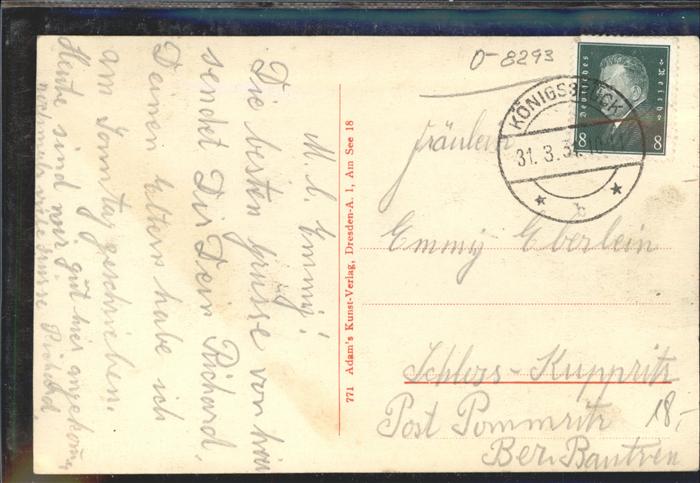 M. l. Emmy!
Die besten Grüsse von hier
sendet Dir Dein Richard.
Deinen Eltern habe ich
am Sonntag geschrieben.
Heute sind wir gut hier angekom̄en
nochmals viele Grüsse Richard.
771 Adam's Kunst-Verlag, Dresden-A. 1, Am See 18
0-8293
Deutsches Reich
8 8
KÖNIGSBRÜCK
31. 3. 31.
b
Fräulein
Emmy Eberlein
Schloss-Kuppritz
Post Pommritz
Bez. Bautzen
18,-